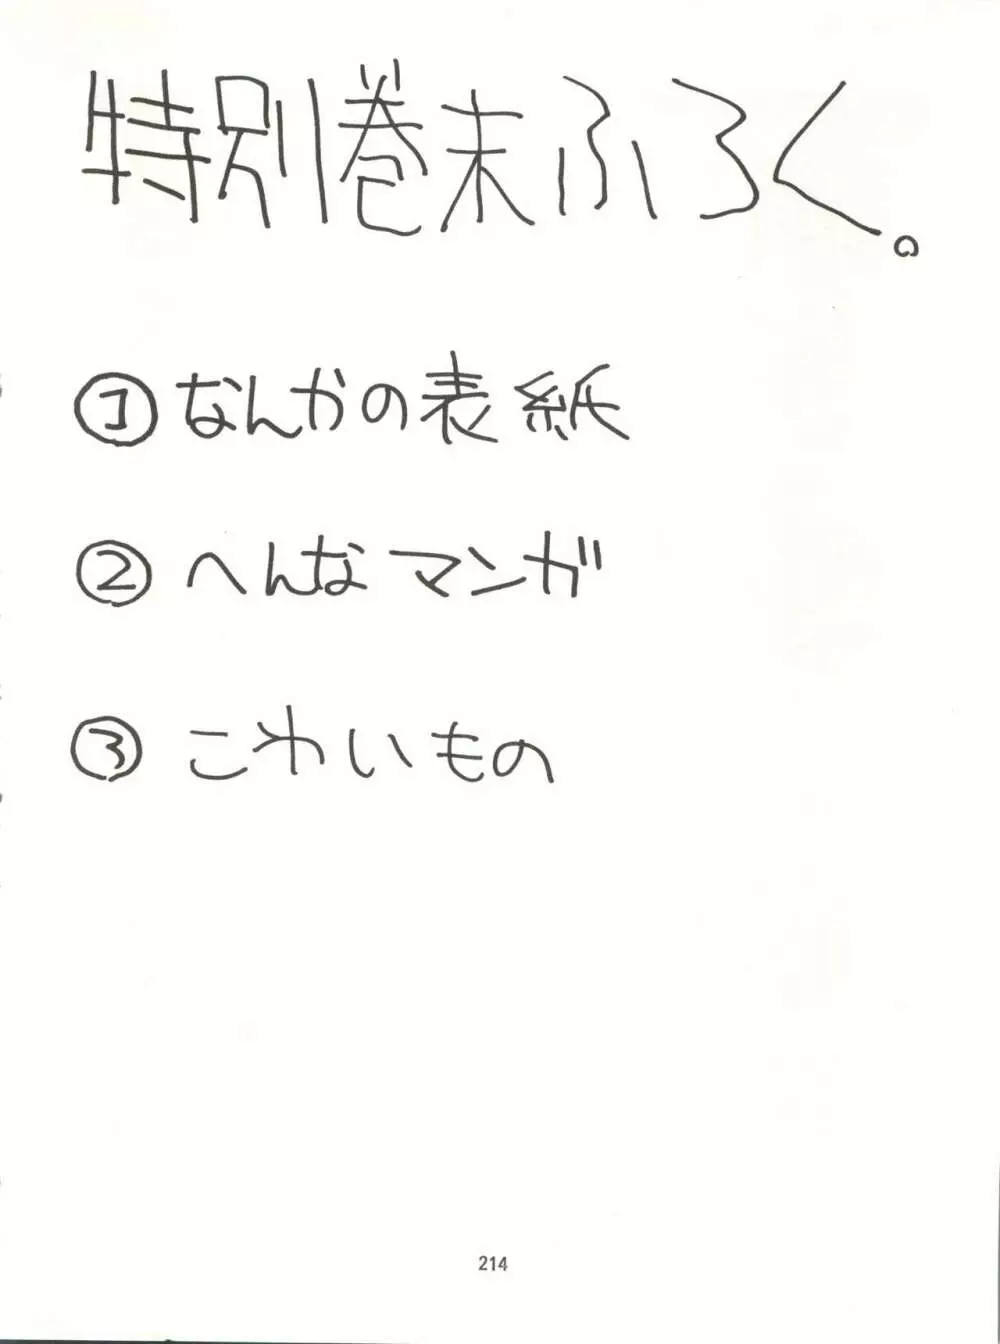 特別巻末ふろく。
①なんかの表紙
②へんなマンガ
③こわいもの
214